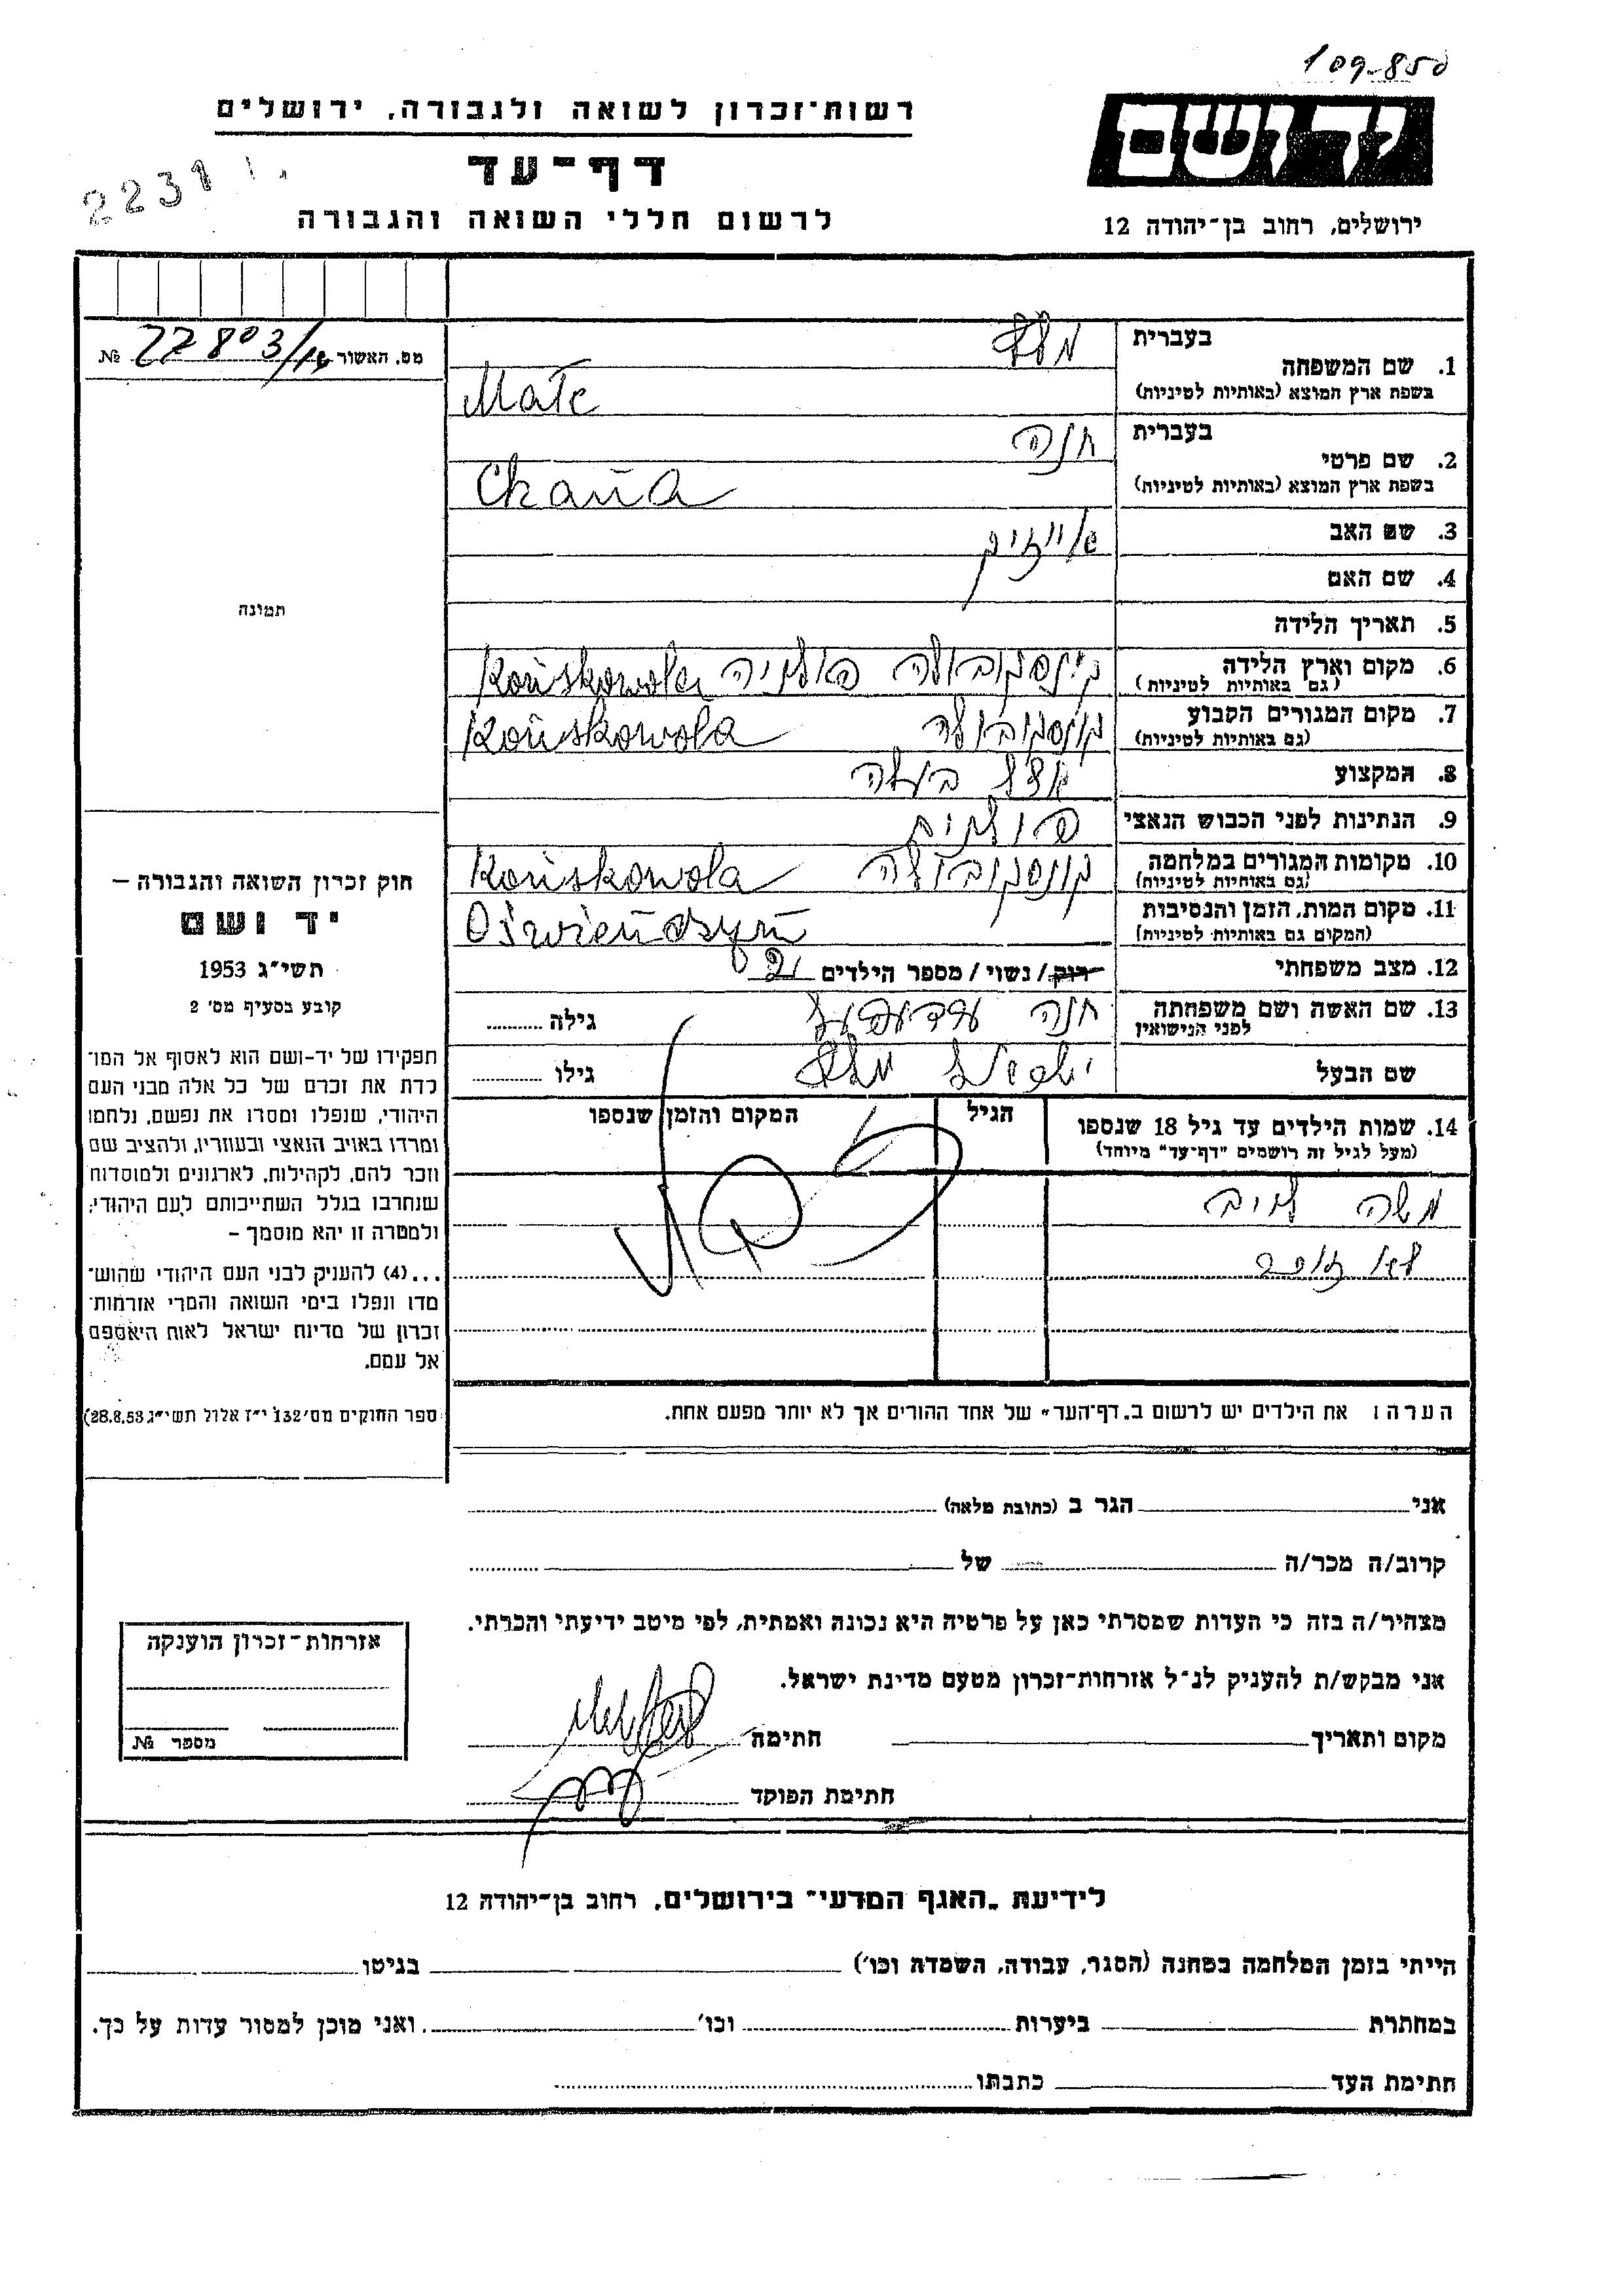 109-850
ידושם
ירושלים, רחוב בן־יהודה 12
רשות־זכרון לשואה ולגבורה, ירושלים
דף־עד
לרשום חללי השואה והגבורה
2231
מס. האשור 22803/ №
תמונה
1. שם המשפחה
בעברית
בשפת ארץ המוצא (באותיות לטיניות)
Mate
2. שם פרטי
בעברית חנה
בשפת ארץ המוצא (באותיות לטיניות)
Chana
3. שם האב
4. שם האם
5. תאריך הלידה
6. מקום וארץ הלידה
(גם באותיות לטיניות)
פולניה Końskowola
7. מקום המגורים הקבוע
(גם באותיות לטיניות)
קונסקובולה Końskowola
8. המקצוע
9. הנתינות לפני הכבוש הנאצי
פולנית
10. מקומות המגורים במלחמה
(גם באותיות לטיניות)
קונסקובולה Końskowola
11. מקום המות, הזמן והנסיבות
(המקום גם באותיות לטיניות)
12. מצב משפחתי
רווק / נשוי / מספר הילדים 2
13. שם האשה ושם משפחתה
לפני הנישואין
חנה
גילה
שם הבעל
גילו
14. שמות הילדים עד גיל 18 שנספו
(מעל לגיל זה רושמים "דף־עד" מיוחד)
הגיל
המקום והזמן שנספו
משה לייב
הערה: את הילדים יש לרשום ב„דף־העד" של אחד ההורים אך לא יותר מפעם אחת.
חוק זכרון השואה והגבורה —
יד ושם
תשי"ג 1953
קובע בסעיף מס' 2
תפקידו של יד-ושם הוא לאסוף אל המו־
לדת את זכרם של כל אלה מבני העם
היהודי, שנפלו ומסרו את נפשם, נלחמו
ומרדו באויב הנאצי ובעוזריו, ולהציב שם
וזכר להם, לקהילות, לארגונים ולמוסדות
שנחרבו בגלל השתייכותם לעם היהודי;
ולמטרה זו יהא מוסמך —
...(4) להעניק לבני העם היהודי שהוש־
מדו ונפלו בימי השואה והמרי אזרחות־
זכרון של מדינת ישראל לאות היאספם
אל עמם.
ספר החוקים מס' 132 י"ז אלול תשי"ג 28.8.53)
אני הגר ב (כתובת מלאה)
קרוב/ה מכר/ה של
מצהיר/ה בזה כי העדות שמסרתי כאן על פרטיה היא נכונה ואמתית, לפי מיטב ידיעתי והכרתי.
אני מבקש/ת להעניק לנ"ל אזרחות־זכרון מטעם מדינת ישראל.
מקום ותאריך חתימה
חתימת הפוקד
אזרחות־זכרון הוענקה
מספר №
לידיעת „האגף המדעי" בירושלים, רחוב בן־יהודה 12
הייתי בזמן המלחמה במחנה (הסגר, עבודה, השמדה וכו') בגיטו
במחתרת ביערות וכו' ואני מוכן למסור עדות על כך.
חתימת העד כתבתו